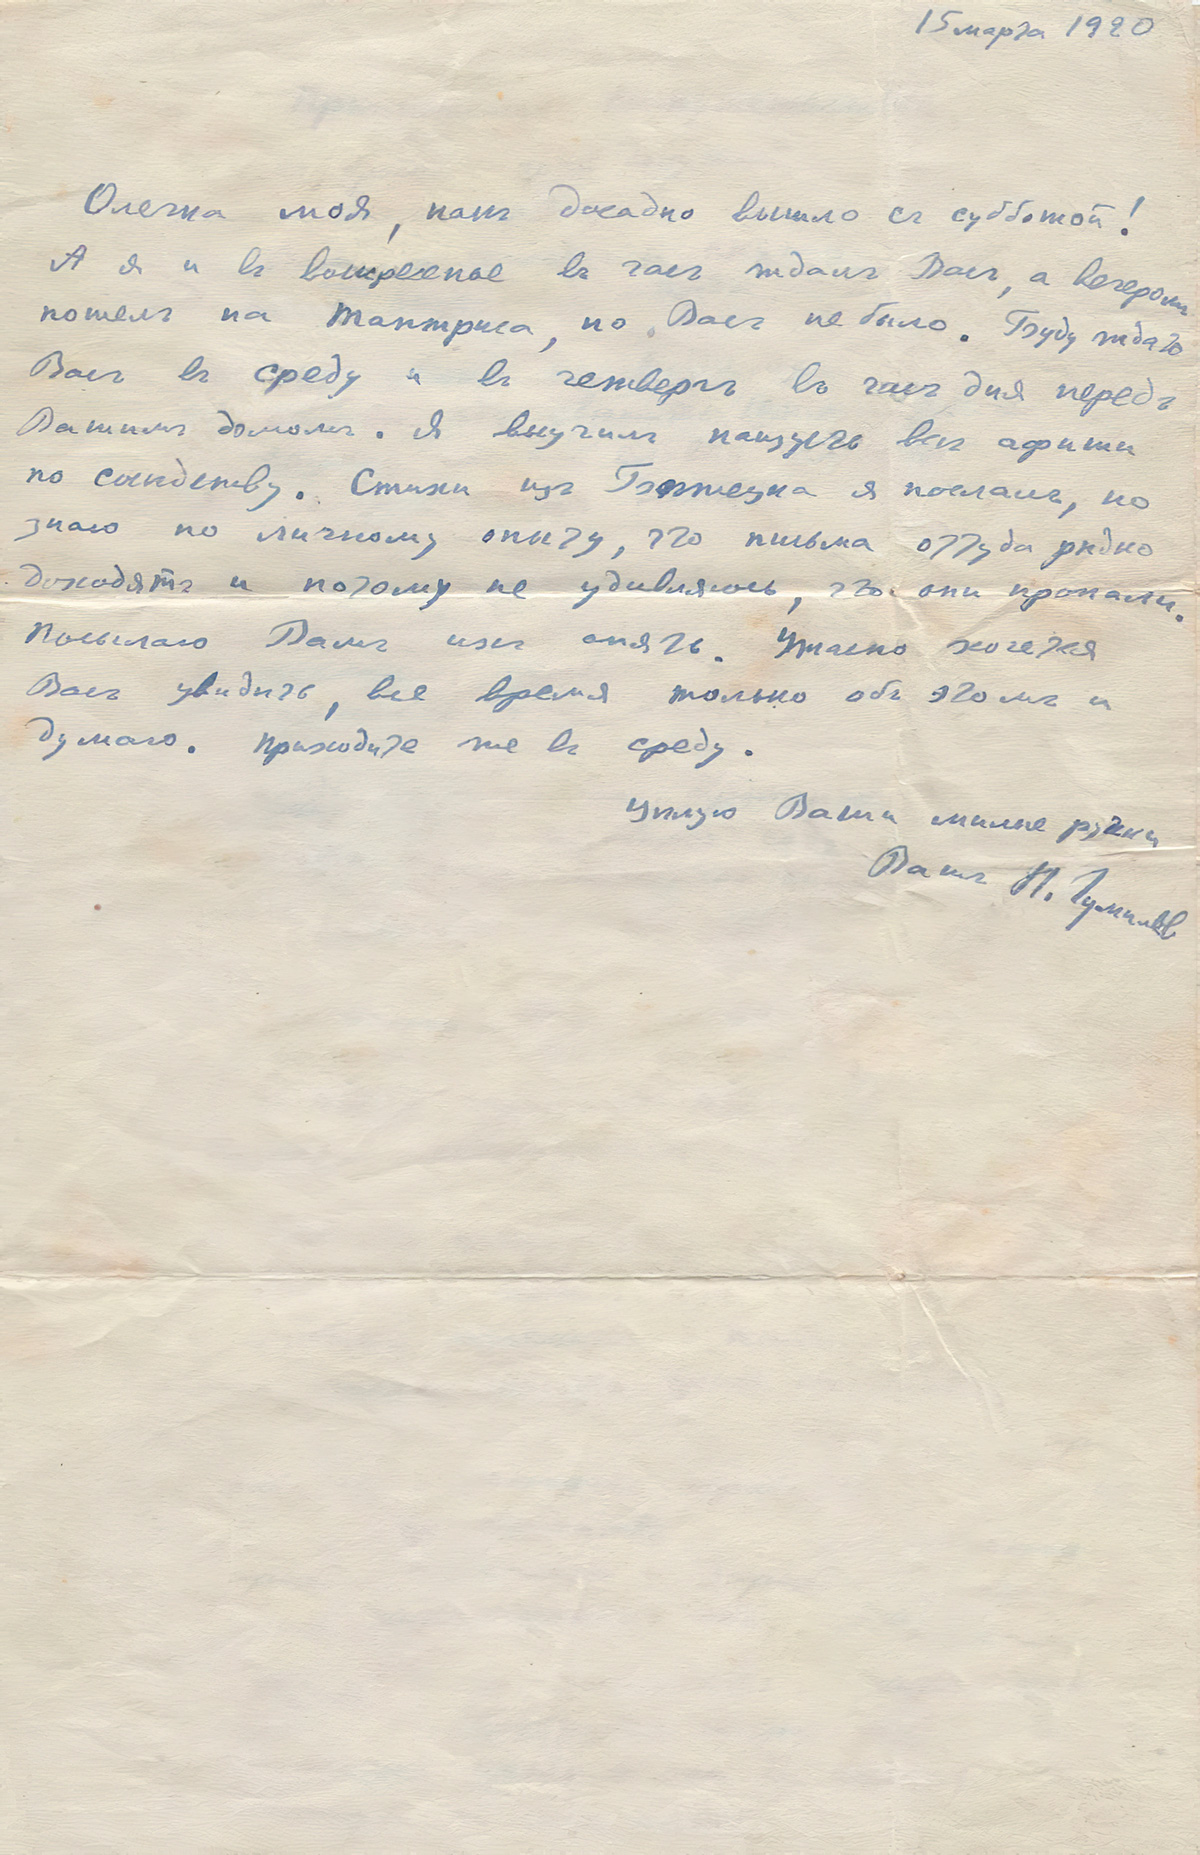 15 марта 1920
Олечка моя, какъ досадно вышло съ субботой!
А я и въ воскресенье въ часъ ждалъ Васъ, а вечеромъ
пошелъ на Тантриса, но Васъ не было. Буду ждать
Васъ въ среду и въ четвергъ въ часъ дня передъ
Вашимъ домомъ. Я выучилъ наизусть всѣ афиши
по сосѣдству. Стихи изъ Бѣжецка я послалъ, но
знаю по личному опыту, что письма оттуда рѣдко
доходятъ и потому не удивляюсь, что они пропали.
Посылаю Вамъ ихъ опять. Ужасно хочется
Васъ увидить, все время только объ этомъ и
думаю. Приходите же въ среду.
Цѣлую Ваши милые ручки
Вашъ Н. Гумилевъ